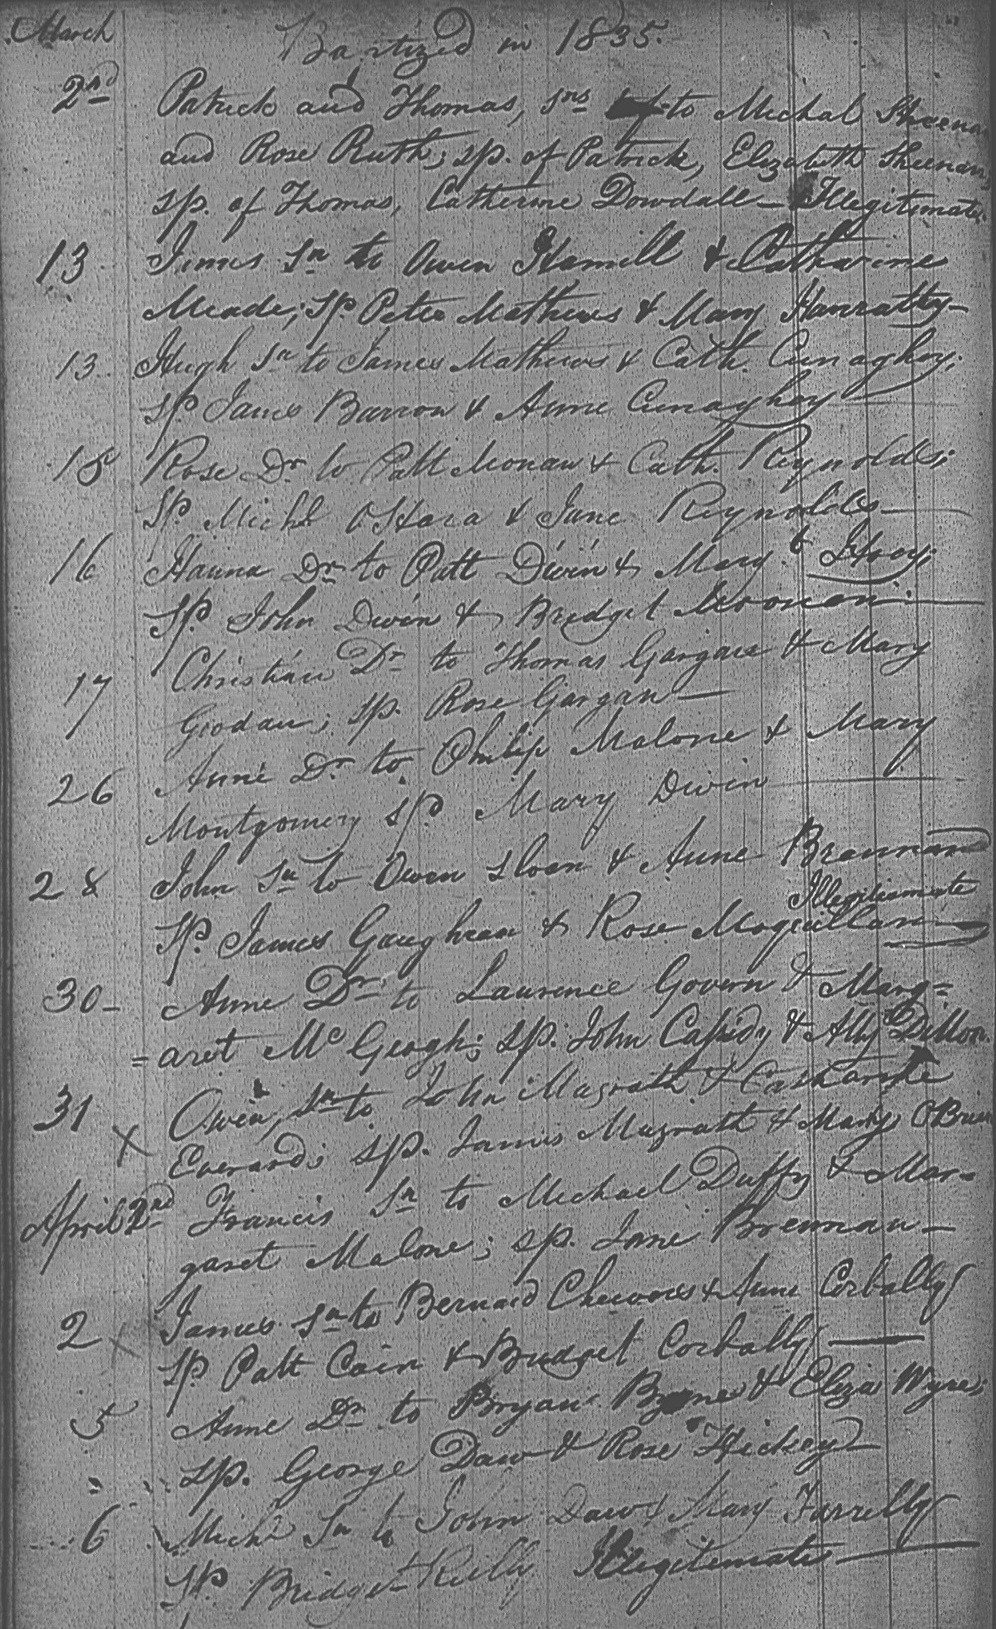 March Baptized in 1835.
2nd Patrick and Thomas, sns to Michal Sheenan
and Rose Ruth; sp. of Patrick, Elizabeth Sheenan,
sp. of Thomas, Catherine Dowdall — Illegitimate
13 James Sn to Owen Hamill & Catharine
Meade; Sp. Peter Mathews & Mary Hanratty —
13 Hugh Sn to James Mathews & Cath. Cunaghey;
Sp. James Barron & Anne Cunaghey
18 Rose Dr. to Patt Monan & Cath. Reynolds;
Sp. Michl. OHara & Jane Reynolds —
16 Hanna Dr to Patt Divin & Mary Hoey;
Sp. John Divin & Bridget Moonan —
17 Christian Dr to Thomas Gargan & Mary
Grodan; sp. Rose Gargan —
26 Anne Dr to Philip Malone & Mary
Montgomery Sp. Mary Divin
28 John Sn to Owen Sloan & Anne Brannan
Illegitiamate
Sp. James Gaughran & Rose Maguillan —
30 — Anne Dr to Laurence Govern & Marg=
=aret Mc Geogh; Sp. John Cassidy & Ally Dillon.
31 X Owen, Sn to John Magrath & Catharine
Everard; Sp. James Magrath & Mary O'Brien
April 2nd Francis Sn to Michael Duffy & Mar=
garet Malone; Sp. Jane Brennan —
2 X James Sn to Bernard Cheevers & Anne Corbally
Sp. Patt Cain & Bridget Corbally —
5 Anne Dr to Bryan Byrne & Eliza Wyne;
Sp. George Daw & Rose Hickey —
6 Michl Sn to John Daw & Mary Farrelly
Sp. Bridget Reilly Illegitimate —